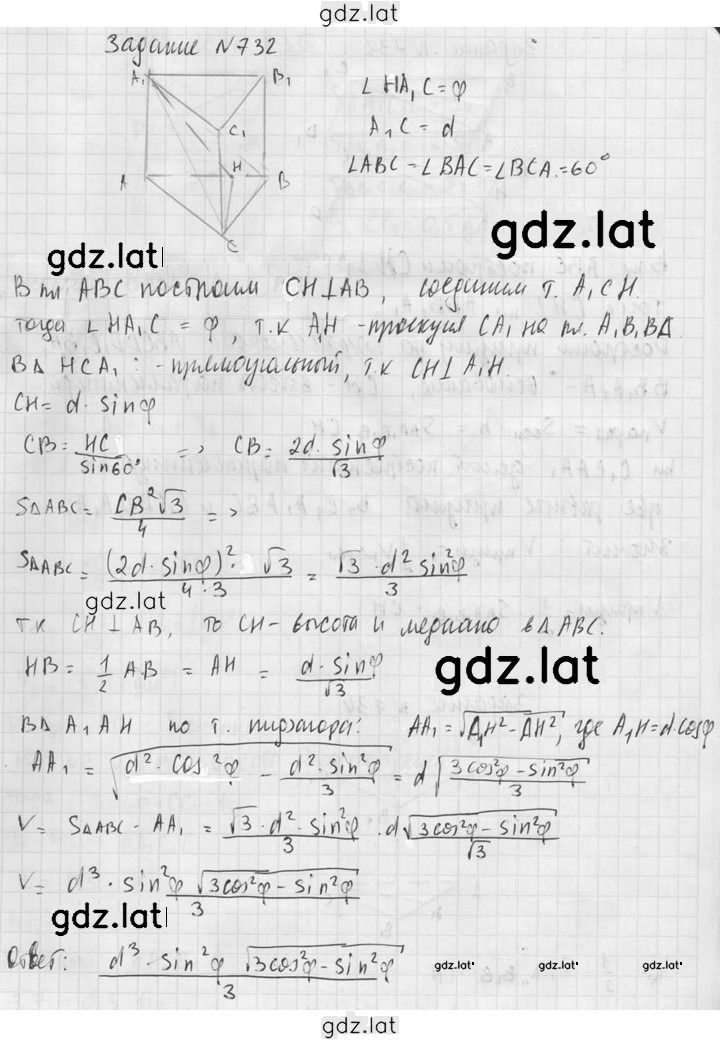 gdz.lat
Задание N732
A₁ B₁ C₁ A H B C
∠ HA₁C = φ
A₁C = d
∠ABC = ∠BAC = ∠BCA = 60°
gdz.lat
gdz.lat
В пл ABC построим CH⊥AB, соединим т. A₁CH
тогда ∠HA₁C = φ, т.к A₁H - проекция CA₁ на пл. A₁B₁BA
В Δ HCA₁: - прямоугольный, т.к CH⊥A₁H.
CH = d · sinφ
CB = HC/sin60° => CB = 2d·sinφ/√3
SΔABC = CB²√3/4 =>
SΔABC = (2d·sinφ)²·√3/4·3 = √3·d²·sin²φ/3
gdz.lat
т.к CH⊥AB, то CH - высота и медиана в ΔABC.
HB = 1/2 AB = AH = d·sinφ/√3
gdz.lat
В Δ A₁AH по т. пифагора: AA₁ = √A₁H² - AH², где A₁H = d·cosφ
AA₁ = √d²·cos²φ - d²·sin²φ/3 = d√3cos²φ - sin²φ/3
V = SΔABC · AA₁ = √3·d²·sin²φ/3 · d√3cos²φ - sin²φ/√3
V = d³·sin²φ √3cos²φ - sin²φ/3
gdz.lat
Ответ: d³·sin²φ √3cos²φ - sin²φ/3
gdz.lat
gdz.lat
gdz.lat
gdz.lat